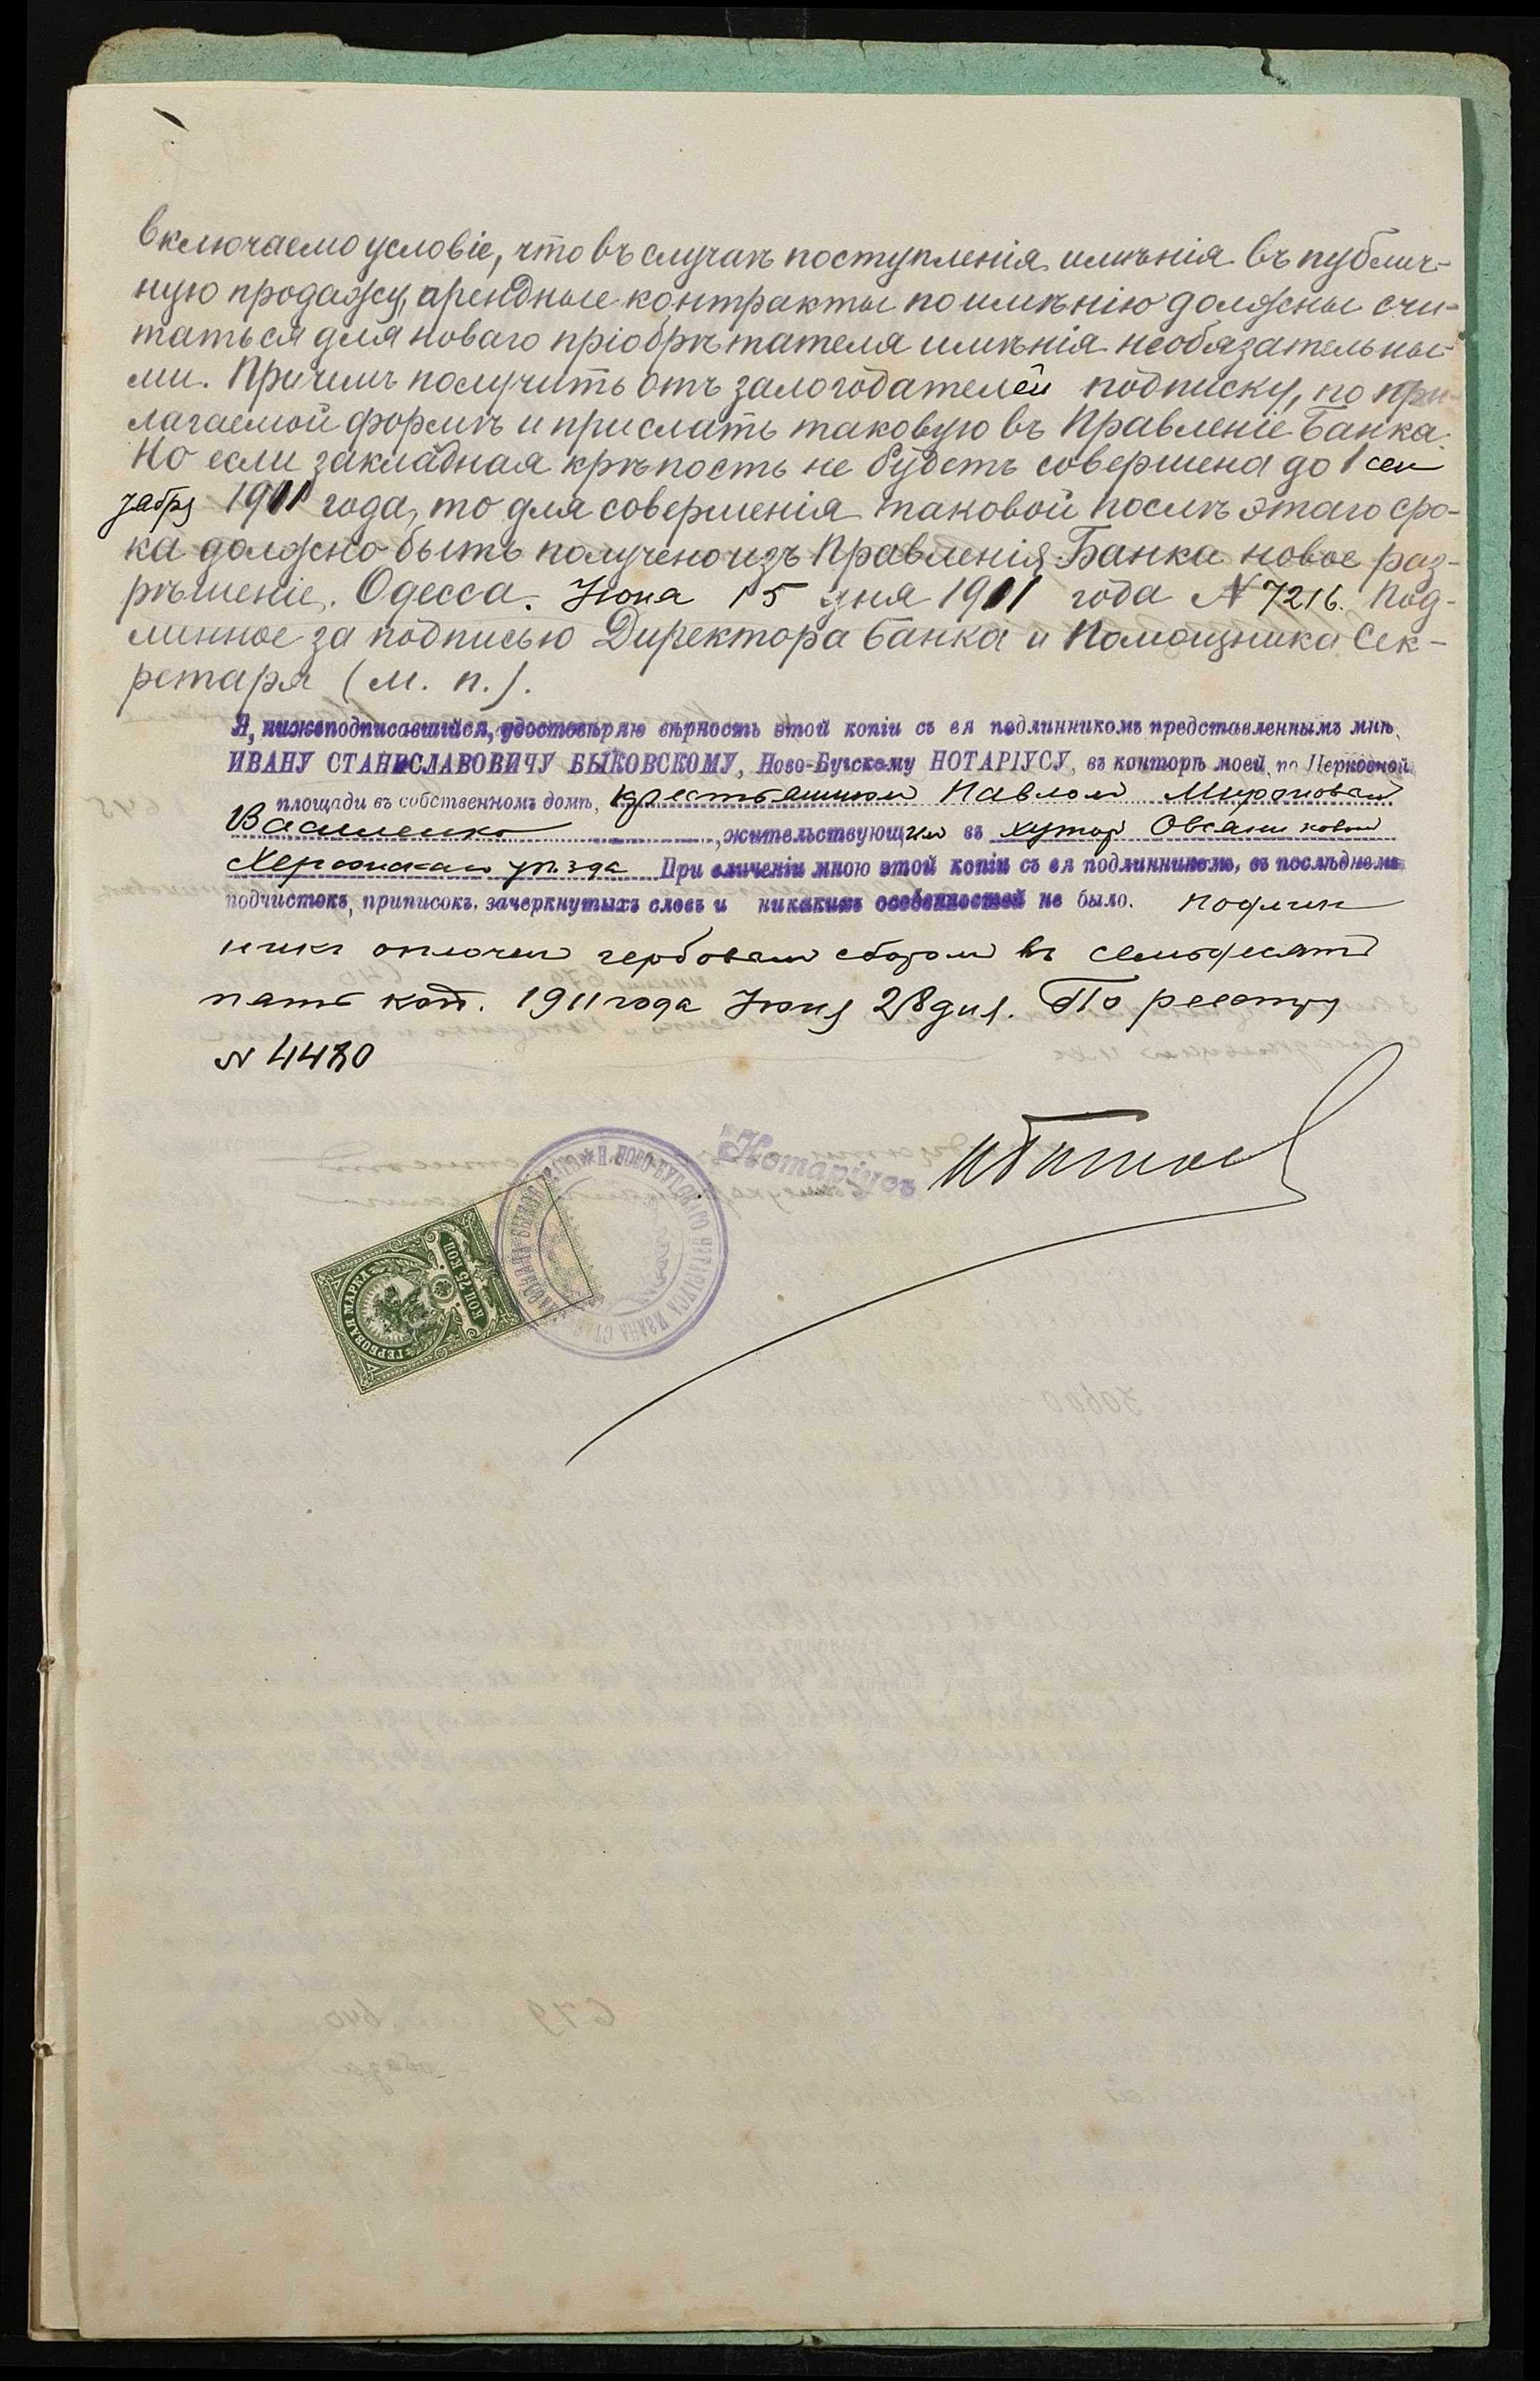 включаемо условіе, что въ случаѣ поступленія имѣнія въ публич-
ную продажу, арендные контракты по имѣнію должны счи-
таться для новаго пріобрѣтателя имѣнія необязательны-
ми. Причемъ получить отъ залогодателей подписку, по при-
лагаемой формѣ и прислать таковую въ Правленіе Банка.
Но если закладная крѣпость не будетъ совершена до 1 сен
тября 1911 года, то для совершенія таковой послѣ этаго сро-
ка должно быть получено изъ Правленія Банка новое раз-
рѣшеніе. Одесса. Іюня 15 дня 1911 года № 7216. Под-
линное за подписью Директора Банка и Помощника Сек-
ретаря (М. п.).
Я, нижеподписавшійся, удостовѣряю вѣрность этой копіи съ ея подлинникомъ представленнымъ мнѣ,
ИВАНУ СТАНИСЛАВОВИЧУ БЫКОВСКОМУ, Ново-Бугскому НОТАРІУСУ, въ конторѣ моей, по Церковной
площади въ собственномъ домѣ, крестьяниномъ Павломъ Мироновымъ
Василенко, жительствующимъ въ хуторѣ Овсяниковомъ
Херсонскаго уѣзда При сличеніи мною этой копіи съ ея подлинникомъ, въ послѣднемъ
подчистокъ, приписокъ, зачеркнутыхъ словъ и никакихъ особенностей не было. Подлин
никъ оплоченъ гербовымъ сборомъ въ семьдесятъ
пять коп. 1911 года Іюня 28 дня. По реестру
№ 4480
Нотаріусъ
Н. НОВО-БУГСКАГО НОТАРІУСА ИВАНА
ГЕРБОВАЯ МАРКА
КОП 25 КОП